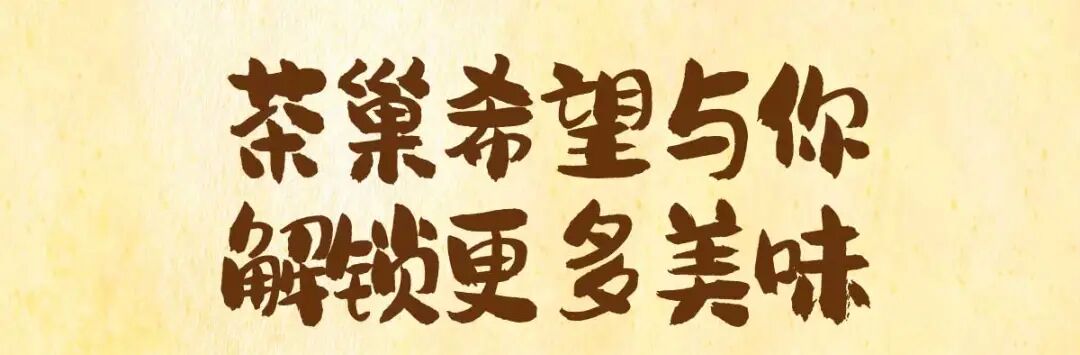 茶巢希望与你
解锁更多美味